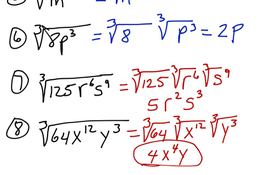 ∛m = m
⑥ ∛8p³ = ∛8 ∛p³ = 2P
⑦ ∛125r⁶s⁹ = ∛125 ∛r⁶ ∛s⁹
5r²s³
⑧ ∛64x¹²y³ = ∛64 ∛x¹² ∛y³
4x⁴y